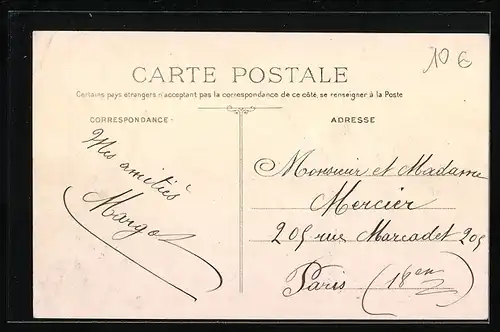 10 €
CARTE POSTALE
Certains pays étrangers n'acceptant pas la correspondance de ce côté, se renseigner à la Poste
CORRESPONDANCE
Mes amitiés
Margot
ADRESSE
Monsieur et Madame
Mercier
205 rue Marcadet 205
Paris (18em)